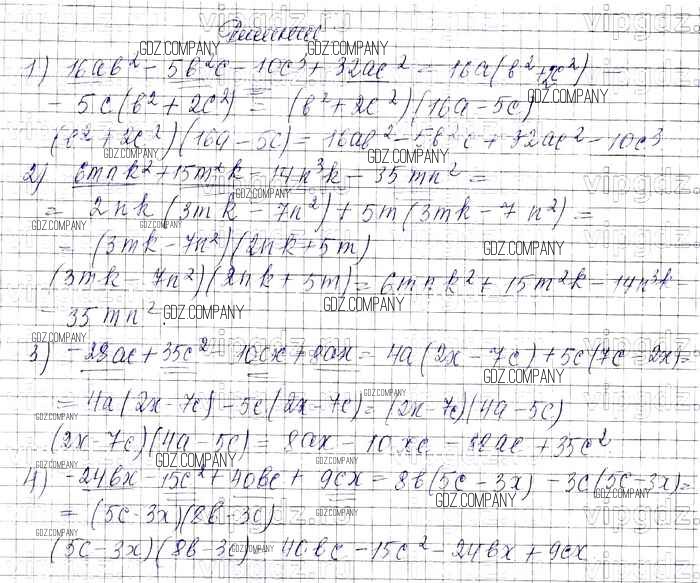 Решение
1) 16ab² - 5b²c - 10c³ + 32ac² = 16a(b² + 2c²) -
- 5c(b² + 2c²) = (b² + 2c²)(16a - 5c)
(b² + 2c²)(16a - 5c) = 16ab² - 5b²c + 32ac² - 10c³
2) 6mnk² + 15m²k - 14n³k - 35mn² =
= 2nk(3mk - 7n²) + 5m(3mk - 7n²) =
= (3mk - 7n²)(2nk + 5m)
(3mk - 7n²)(2nk + 5m) = 6mnk² + 15m²k - 14n³k -
- 35mn².
3) -28ac + 35c² - 10cx + 8ax = 4a(2x - 7c) + 5c(7c - 2x) =
= 4a(2x - 7c) - 5c(2x - 7c) = (2x - 7c)(4a - 5c)
(2x - 7c)(4a - 5c) = 8ax - 10xc - 28ac + 35c²
4) -24bx - 15c² + 40bc + 9cx = 8b(5c - 3x) - 3c(5c - 3x) =
= (5c - 3x)(8b - 3c)
(5c - 3x)(8b - 3c) = 40bc - 15c² - 24bx + 9cx
GDZ.COMPANY
vipgdz.ru